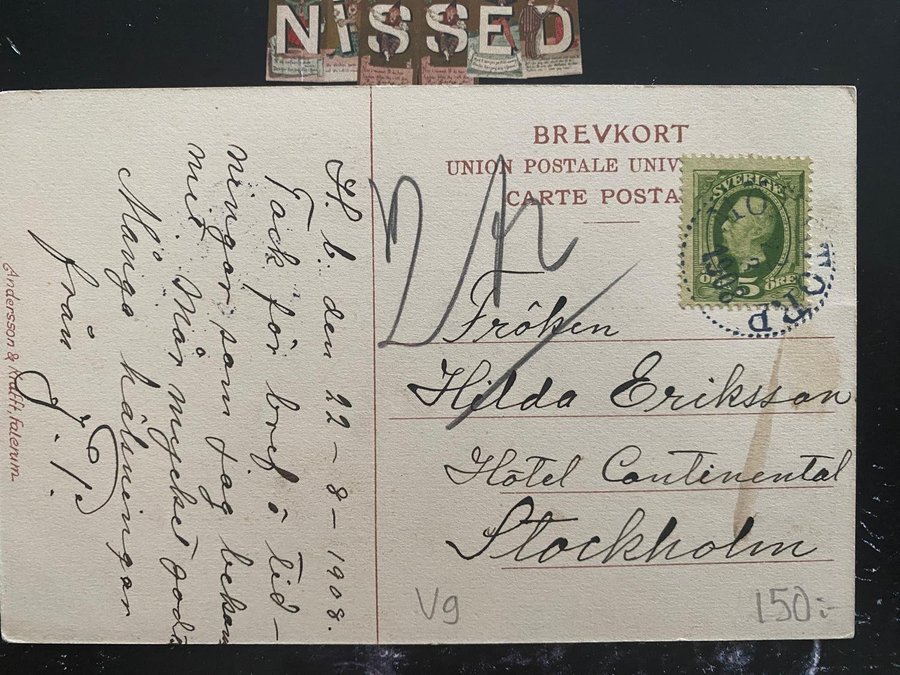 NISSED
BREVKORT
UNION POSTALE UNIV
CARTE POSTA
SVERIGE
5 ÖRE
Fröken
Hilda Eriksson
Hôtel Continental
Stockholm
Vg
150:-
H. b. den 22-8-1908.
Tack för bref o tid-
ningar som jag bekom
mit. Mår mycket godt
Många hälsningar
från
Andersson & Krafft, Falerum